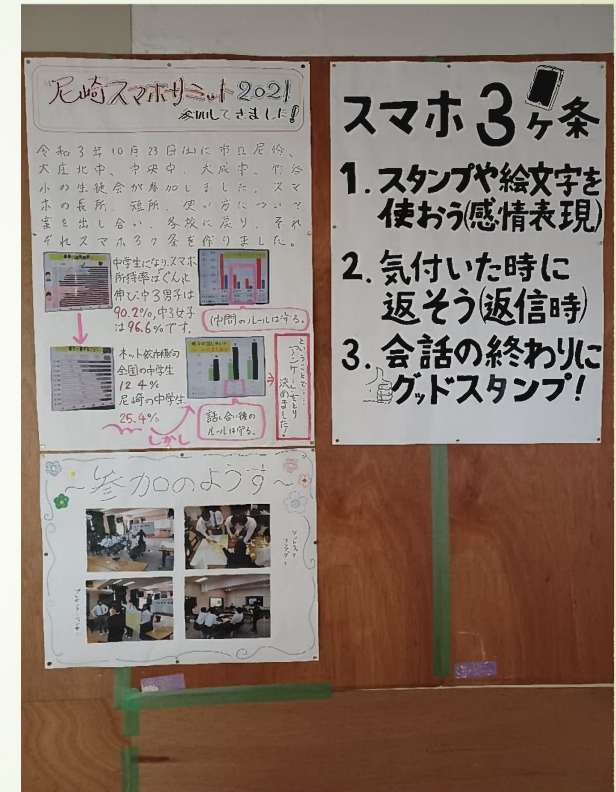 尼崎スマホサミット2021
参加してきました!
令和3年10月23日(土)に市立尼崎、
大庄北中、中央中、大成中、竹谷
小の生徒会が参加しました。スマ
ホの長所、短所、使い方について
意見を出し合い、各校に戻り、それ
ぞれスマホ3ヶ条を作りました。
中学生になり、スマホ
所持率はぐんと
伸び、中3男子は
90.2%、中3女子
は96.6%です。
仲間のルールは守る。
ネット依存傾向
全国の中学生
12.4%
尼崎の中学生
25.4%
しかし
話し合い後の
ルールは守る。
ということで……
アンケートをとり
決めました!
~参加のようす~
スマホ3ヶ条
1. スタンプや絵文字を
使おう(感情表現)
2. 気付いた時に
返そう(返信時)
3. 会話の終わりに
グッドスタンプ!